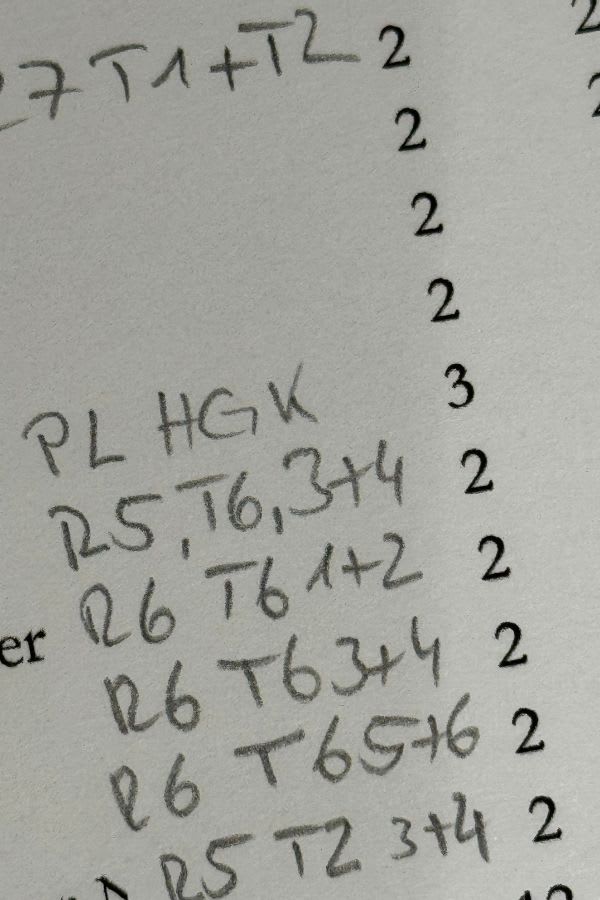 R7 T1+T2 2
2
2
2
PL HGK 3
R5, T6, 3+4 2
R6 T6 1+2 2
er R6 T6 3+4 2
R6 T6 5+6 2
R5 T2 3+4 2